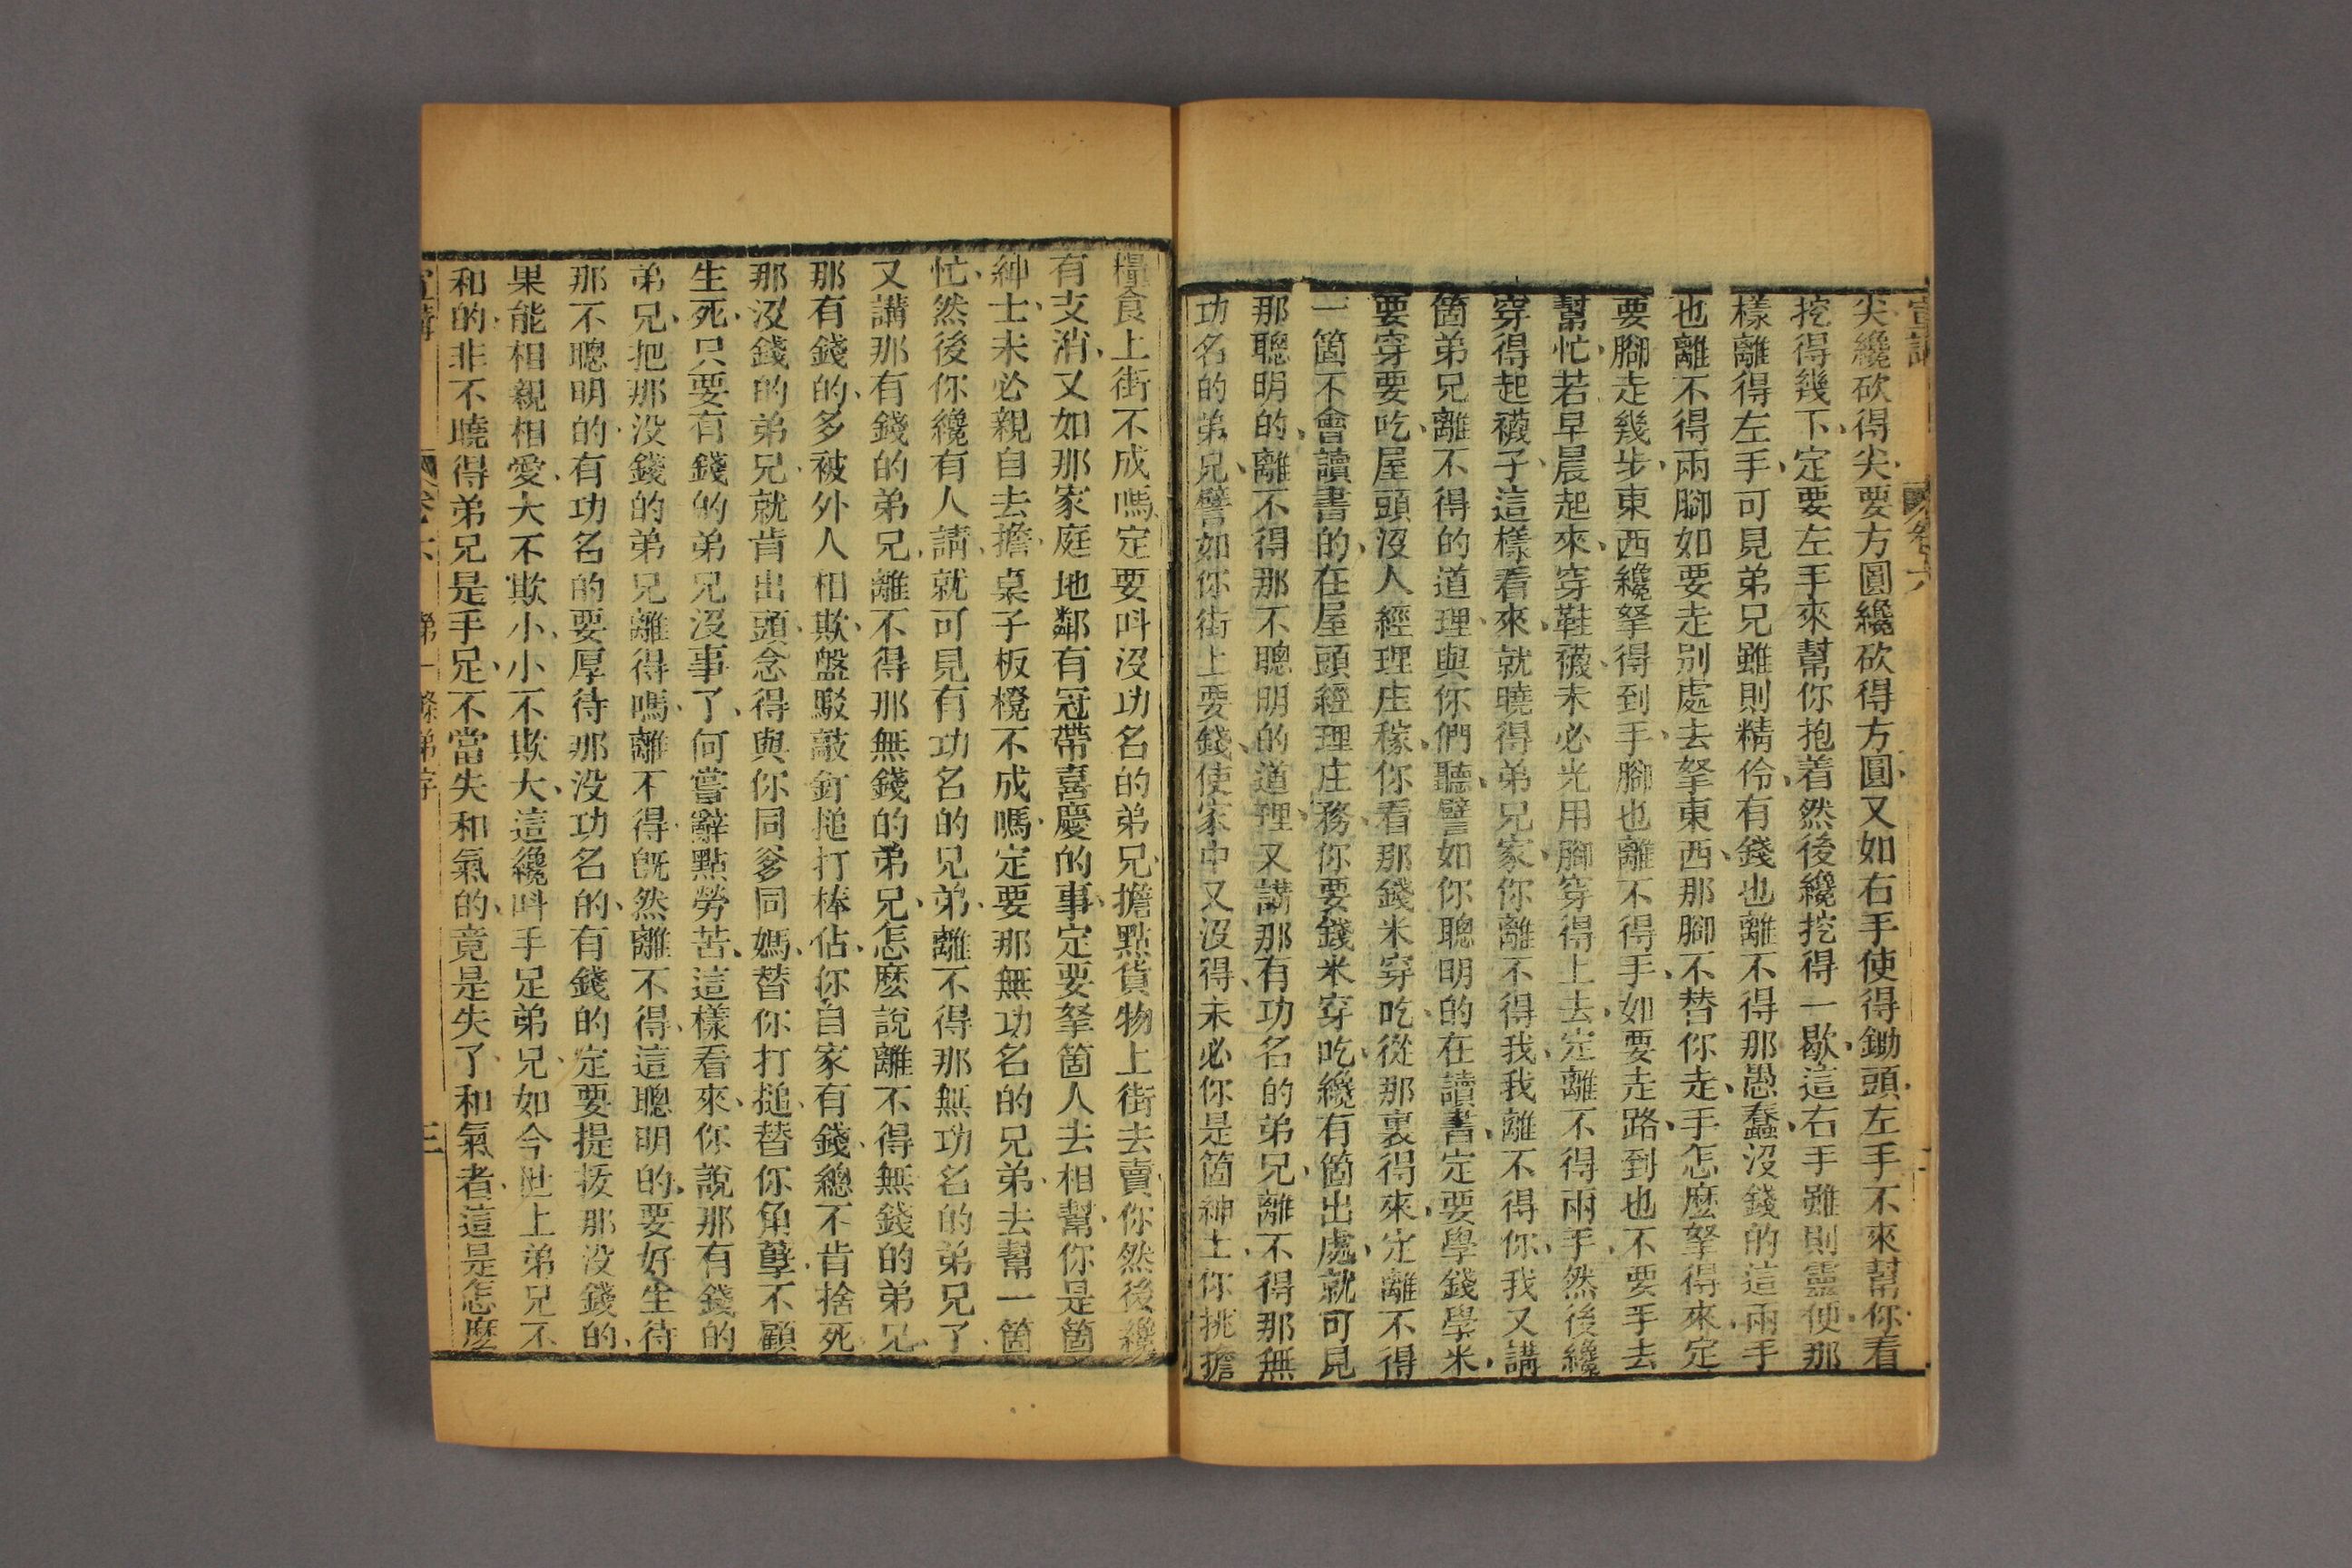 尖纔砍得尖、要方圓纔砍得方圓、又如右手使得鋤頭、左手不來幫你、看
挖得幾下、定要左手來幫你抱着、然後纔挖得一歇、這右手雖則靈便、那
樣離得左手、可見弟兄雖則精伶、有錢也離不得那愚蠢、沒錢的這兩手
也離不得兩腳、如要走別處去拏東西、那腳不替你走、手怎麼拏得來、定
要腳走幾步、東西纔拏得到手、腳也離不得手、如要走路、到也不要手去
幫忙、若早晨起來、穿鞋襪、未必光用腳穿得上去、定離不得兩手、然後纔
穿得起襪子、這樣看來、就曉得弟兄家、你離不得我、我離不得你、我又講
箇弟兄離不得的道理、與你們聽、譬如你聰明的在讀書、定要學錢學米、
要穿要吃、屋頭沒人經理庄稼、你看那錢米穿吃、從那裏得來、定離不得
一箇不會讀書的、在屋頭經理庄務、你要錢米穿吃、纔有箇出處、就可見
那聰明的、離不得那不聰明的道理、又講那有功名的弟兄、離不得那無
功名的弟兄、譬如你街上要錢使、家中又沒得、未必你是箇紳士、你挑擔
糧食上街不成嗎、定要呌沒功名的弟兄、擔點貨物上街去賣、你然後纔
有支消、又如那家庭地鄰有冠帶喜慶的事、定要拏箇人去相幫、你是箇
紳士、未必親自去擔、桌子板櫈不成嗎、定要那無功名的兄弟、去幫一箇
忙、然後你纔有人請、就可見有功名的兄弟、離不得那無功名的弟兄了、
又講那有錢的弟兄、離不得那無錢的弟兄、怎麽說離不得無錢的弟兄、
那有錢的、多被外人相欺、盤駁敲釘、搥打棒佔、你自家有錢、總不肯捨死、
那沒錢的弟兄、就肯出頭、念得與你同爹同媽、替你打搥、替你角孽、不顧
生死、只要有錢的弟兄沒事了、何嘗辭點勞苦、這樣看來、你說那有錢的
弟兄、把那没錢的弟兄離得嗎、離不得、旣然離不得、這聰明的、要好生待
那不聰明的、有功名的要厚待那没功名的、有錢的定要提拔那没錢的、
果能相親相愛、大不欺小、小不欺大、這纔呌手足弟兄、如今世上弟兄不
和的、非不曉得弟兄是手足、不當失和氣的、竟是失了和氣者、這是怎麽